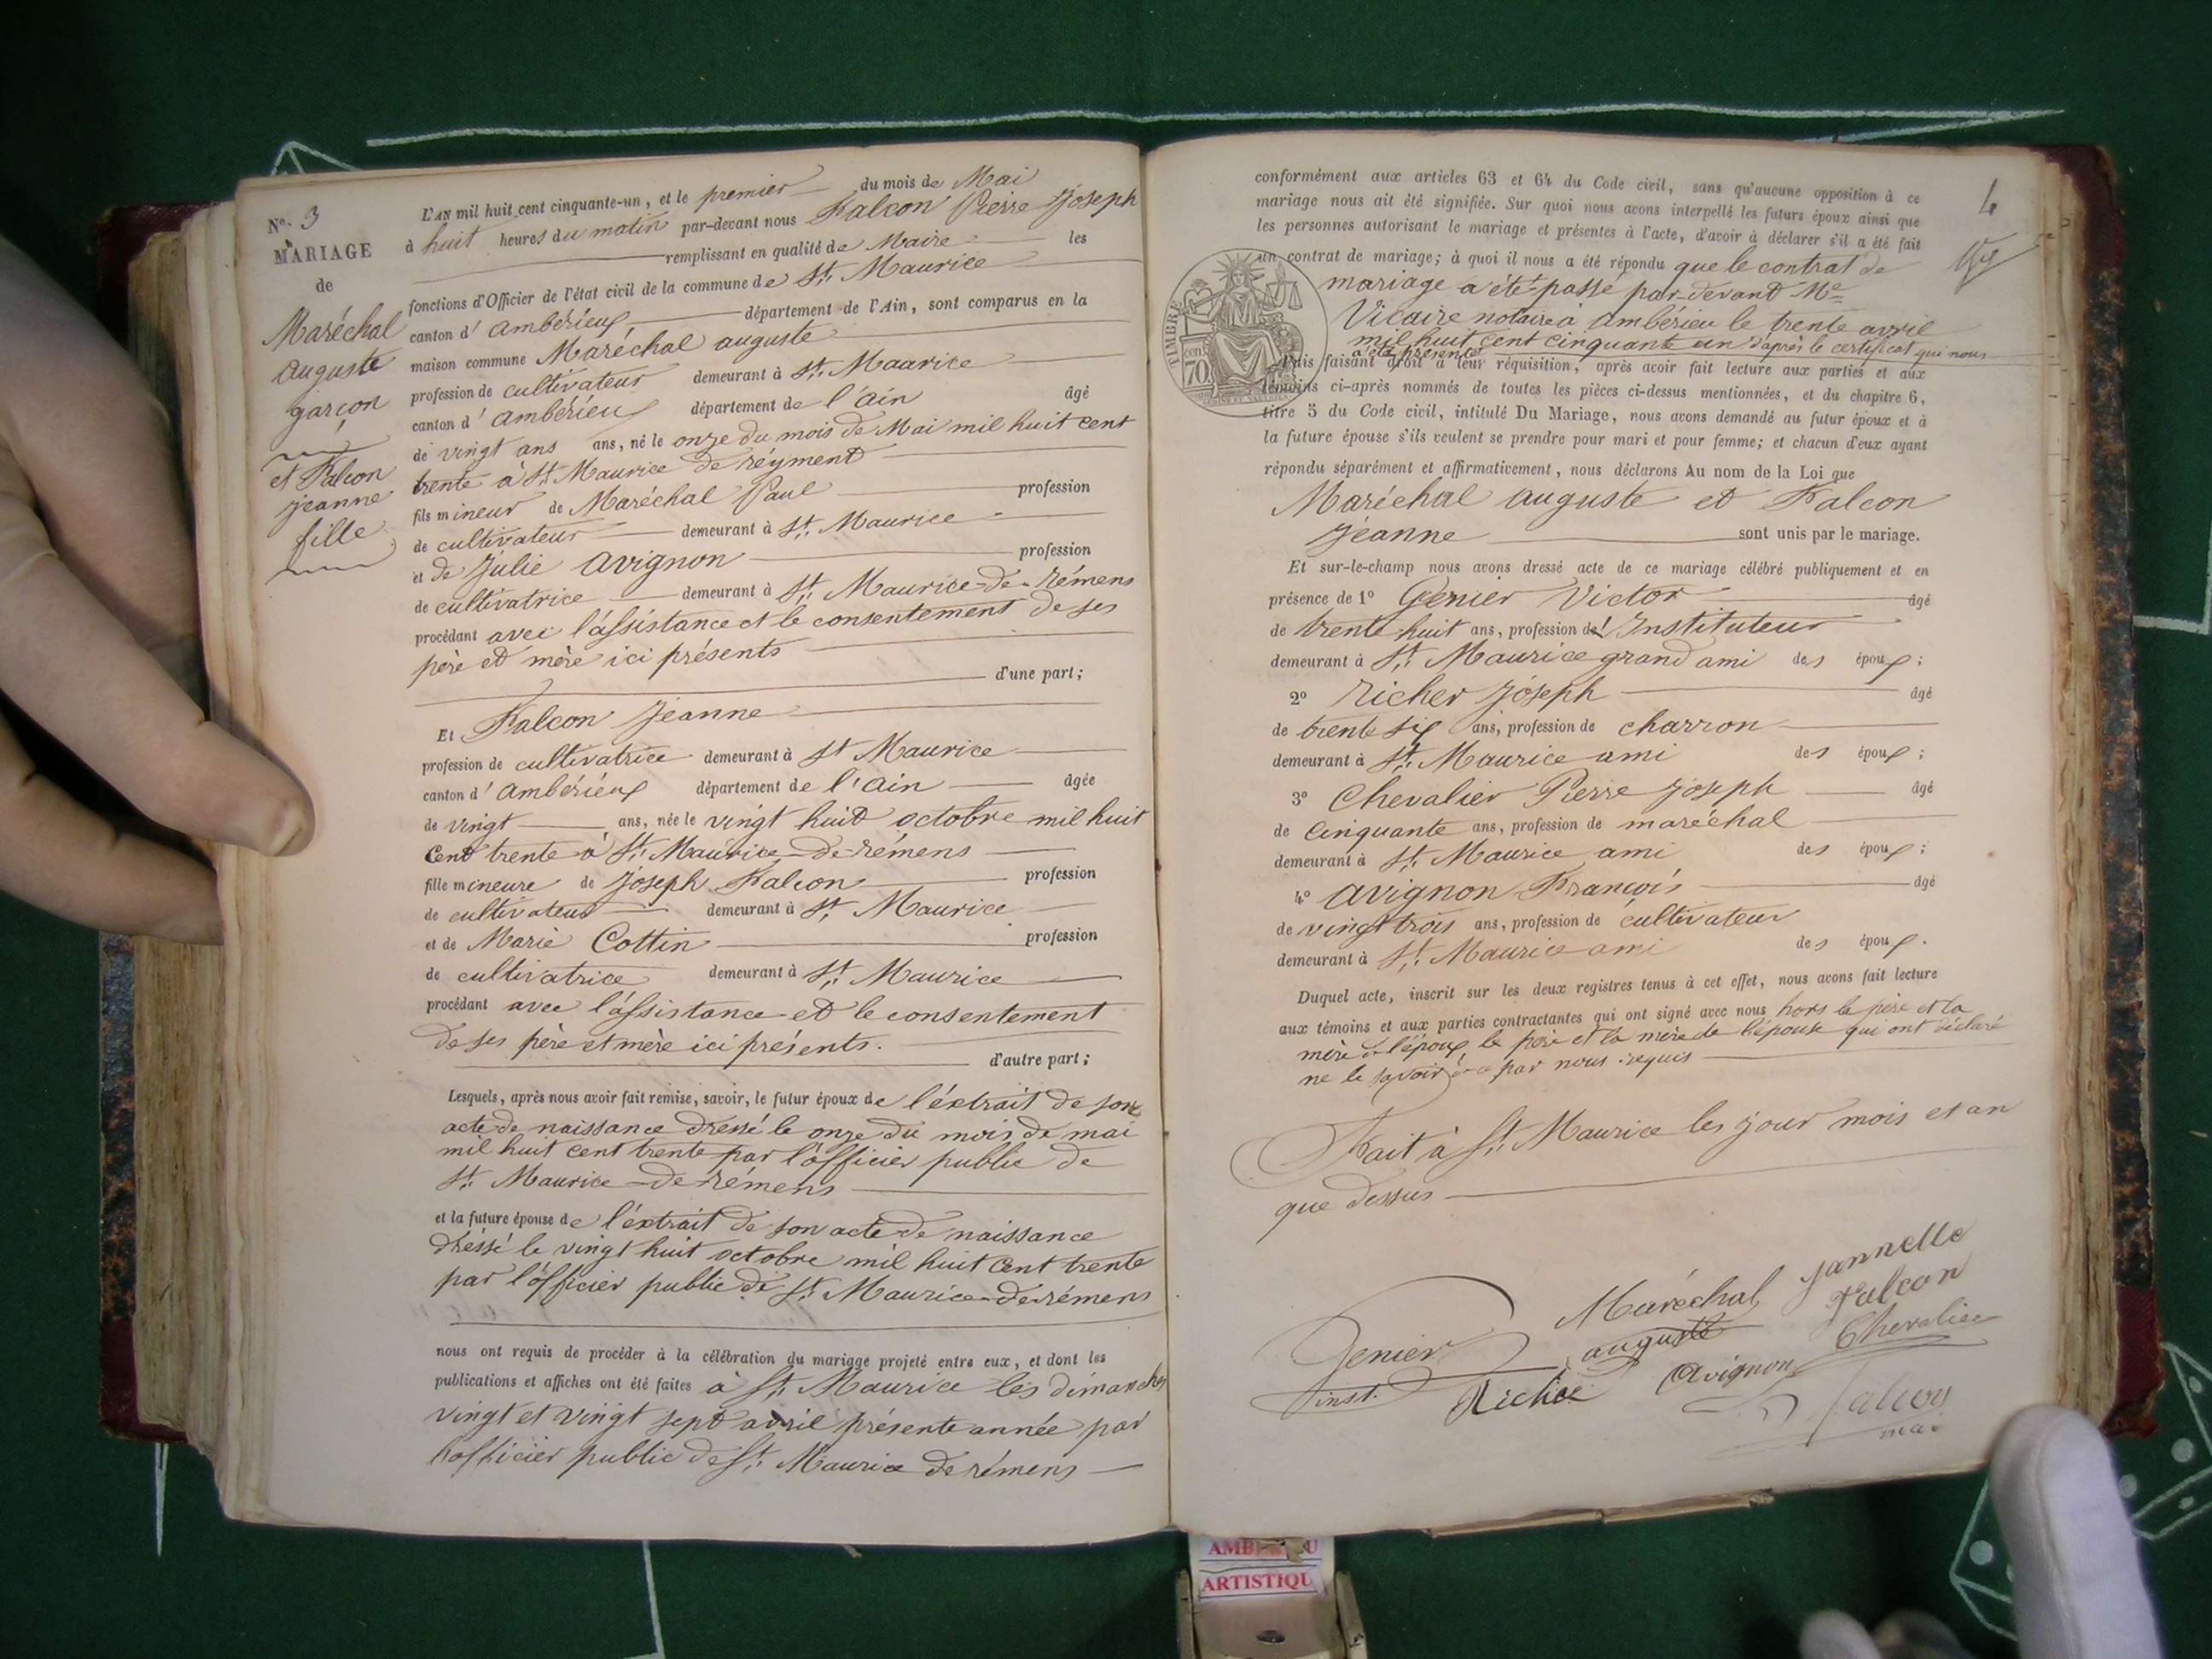 No. 3
MARIAGE
de
Maréchal
auguste
garçon
et Falcon
jeanne
fille
L'AN mil huit cent cinquante-un, et le premier du mois de Mai
à huit heures du matin par-devant nous Falcon Pierre Joseph
remplissant en qualité de Maire les
fonctions d'Officier de l'état civil de la commune de St. Maurice
canton d'ambérieux département de l'Ain, sont comparus en la
maison commune Maréchal auguste
profession de cultivateur demeurant à St. Maurice
canton d'ambérieux département de l'ain âgé
de vingt ans ans, né le onze du mois de Mai mil huit cent
trente à St Maurice de réyment
fils mineur de Maréchal Paul profession
de cultivateur demeurant à St. Maurice
et de Julie Avignon profession
de cultivatrice demeurant à St. Maurice-de-rémens
procédant avec l'assistance et le consentement de ses
père et mère ici présents
d'une part;
Et Falcon Jeanne
profession de cultivatrice demeurant à St Maurice
canton d'ambérieux département de l'ain âgée
de vingt ans, née le vingt huit octobre mil huit
cent trente à St. Maurice-de-rémens
fille mineure de Joseph Falcon profession
de cultivateur demeurant à St. Maurice
et de Marie Cottin profession
de cultivatrice demeurant à St. Maurice
procédant avec l'assistance et le consentement
de ses père et mère ici présents.
d'autre part;
Lesquels, après nous avoir fait remise, savoir, le futur époux de l'extrait de son
acte de naissance dressé le onze du mois de mai
mil huit cent trente par l'officier public de
St. Maurice-de-rémens
et la future épouse de l'extrait de son acte de naissance
dressé le vingt huit octobre mil huit cent trente
par l'officier public de St. Maurice-de-rémens
nous ont requis de procéder à la célébration du mariage projeté entre eux, et dont les
publications et affiches ont été faites à St. Maurice les dimanches
vingt et vingt sept avril présente année par
l'officier public de St. Maurice de rémens
4
conformément aux articles 63 et 64 du Code civil, sans qu'aucune opposition à ce
mariage nous ait été signifiée. Sur quoi nous avons interpellé les futurs époux ainsi que
les personnes autorisant le mariage et présentes à l'acte, d'avoir à déclarer s'il a été fait
un contrat de mariage; à quoi il nous a été répondu que le contrat de
mariage a été passé par-devant Me
Vicaire notaire à ambérieu le trente avril
mil huit cent cinquante un d'après le certificat qui nous
a été présenté
TIMBRE
cent.
70
Puis faisant droit à leur réquisition, après avoir fait lecture aux parties et aux
témoins ci-après nommés de toutes les pièces ci-dessus mentionnées, et du chapitre 6,
titre 5 du Code civil, intitulé Du Mariage, nous avons demandé au futur époux et à
la future épouse s'ils veulent se prendre pour mari et pour femme; et chacun d'eux ayant
répondu séparément et affirmativement, nous déclarons Au nom de la Loi que
Maréchal auguste et Falcon
Jeanne sont unis par le mariage.
Et sur-le-champ nous avons dressé acte de ce mariage célébré publiquement et en
présence de 1º Genier Victor âgé
de trente huit ans, profession d'Instituteur
demeurant à St. Maurice grand ami des époux;
2º Richer Joseph âgé
de trente six ans, profession de charron
demeurant à St. Maurice ami des époux;
3º Chevalier Pierre Joseph âgé
de cinquante ans, profession de maréchal
demeurant à St. Maurice ami des époux;
4º Avignon François âgé
de vingt trois ans, profession de cultivateur
demeurant à St. Maurice ami des époux.
Duquel acte, inscrit sur les deux registres tenus à cet effet, nous avons fait lecture
aux témoins et aux parties contractantes qui ont signé avec nous hors le père et la
mère de l'époux, le père et la mère de l'épouse qui ont déclaré
ne le savoir de ce par nous requis
Fait à St. Maurice les jour mois et an
que dessus
Maréchal
auguste
Jannette
Falcon
Genier
inst.
Richer
Avignon
Chevalier
Falcon
mai
AMB
ARTISTIQU